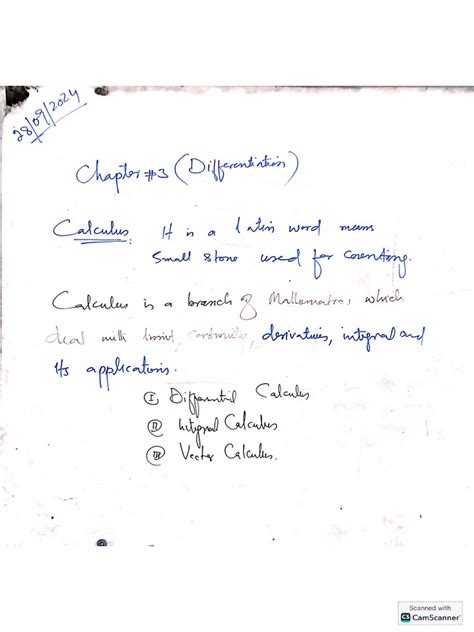 28/09/2024
Chapter #3 (Differentiation)
Calculus: It is a Latin word means
Small stone used for counting.
Calculus is a branch of Mathematics, which
deal with limit, continuity, derivatives, integral and
Its applications.
(I) Differential Calculus
(II) Integral Calculus
(III) Vector Calculus.
Scanned with
CS CamScanner